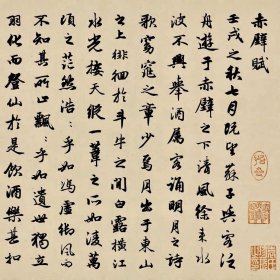 赤壁賦
壬戌之秋七月既望蘇子與客泛
舟遊于赤壁之下清風徐来水
波不興舉酒屬客誦明月之詩
歌窈窕之章少焉月出于東山
之上徘徊於斗牛之間白露橫江
水光接天縱一葦之所如凌萬
頃之茫然浩〻乎如馮虛御風而
不知其所止飄〻乎如遺世獨立
羽化而登仙於是飲酒樂甚扣